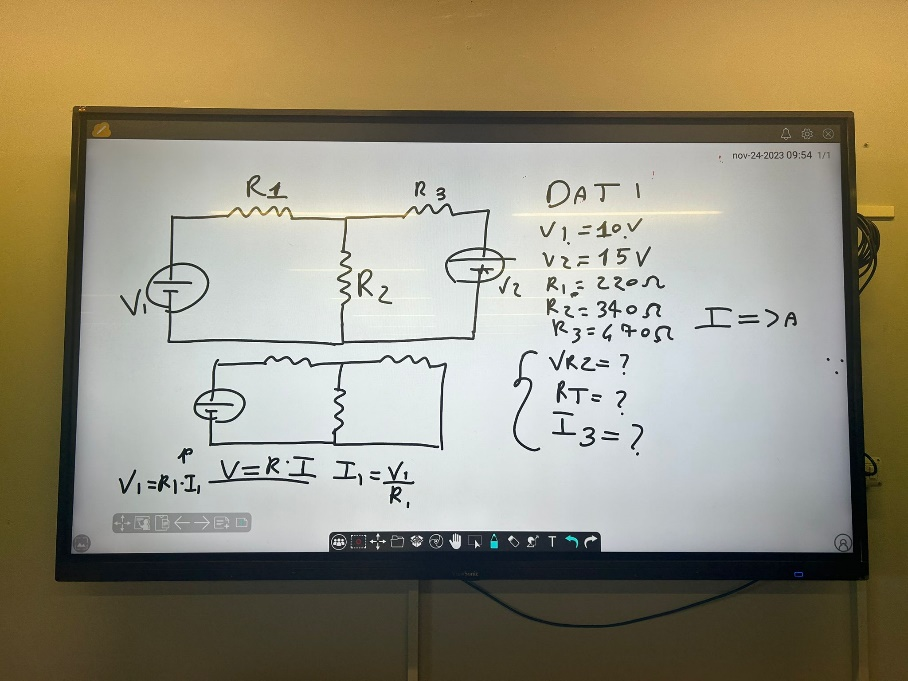 nov-24-2023 09:54 1/1
R1
R3
DATI
V1
R2
V2
V1 = 10V
V2 = 15V
R1 = 220Ω
R2 = 340Ω
R3 = 470Ω
I => A
VR2 = ?
RT = ?
I3 = ?
V1 = R1·I1
V = R·I
I1 = V1/R1
T